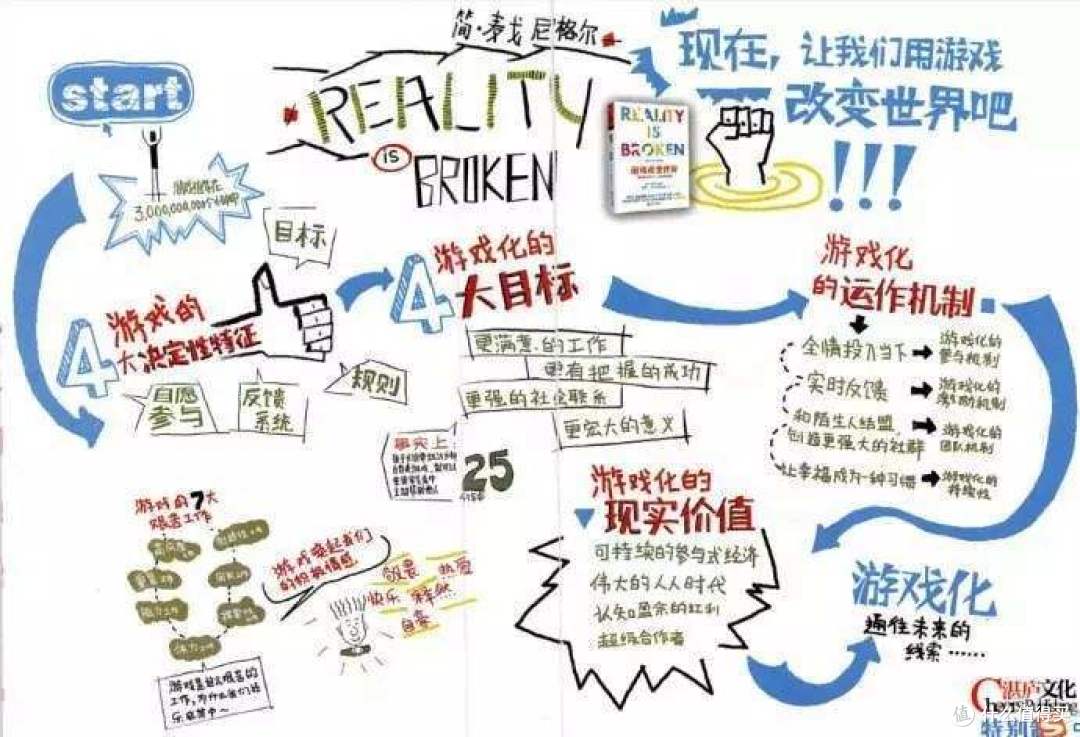 简·麦戈尼格尔
REALITY
IS
BROKEN
现在,让我们用游戏
改变世界吧
!!!
REALITY
IS
BROKEN
start
目标
4
游戏的
大决定性特征
自愿
参与
反馈
系统
规则
4
游戏化的
大目标
更满意的工作
更有把握的成功
更强的社会联系
更宏大的意义
事实上:
25
游戏化
的运作机制
全情投入当下
游戏化的
参与机制
实时反馈
游戏化的
激励机制
和陌生人结盟
创造更强大的社群
游戏化的
团队机制
让幸福成为一种习惯
游戏化的
持续性
游戏的7大
艰苦工作
游戏唤起我们
的积极情感
敬畏 热爱
快乐
自豪
游戏化的
现实价值
可持续的参与式经济
伟大的人人时代
认知盈余的红利
超级合作者
游戏化
通往未来的
线索……
湛庐文化
Cheers Publishing
特别
值 什么值得买